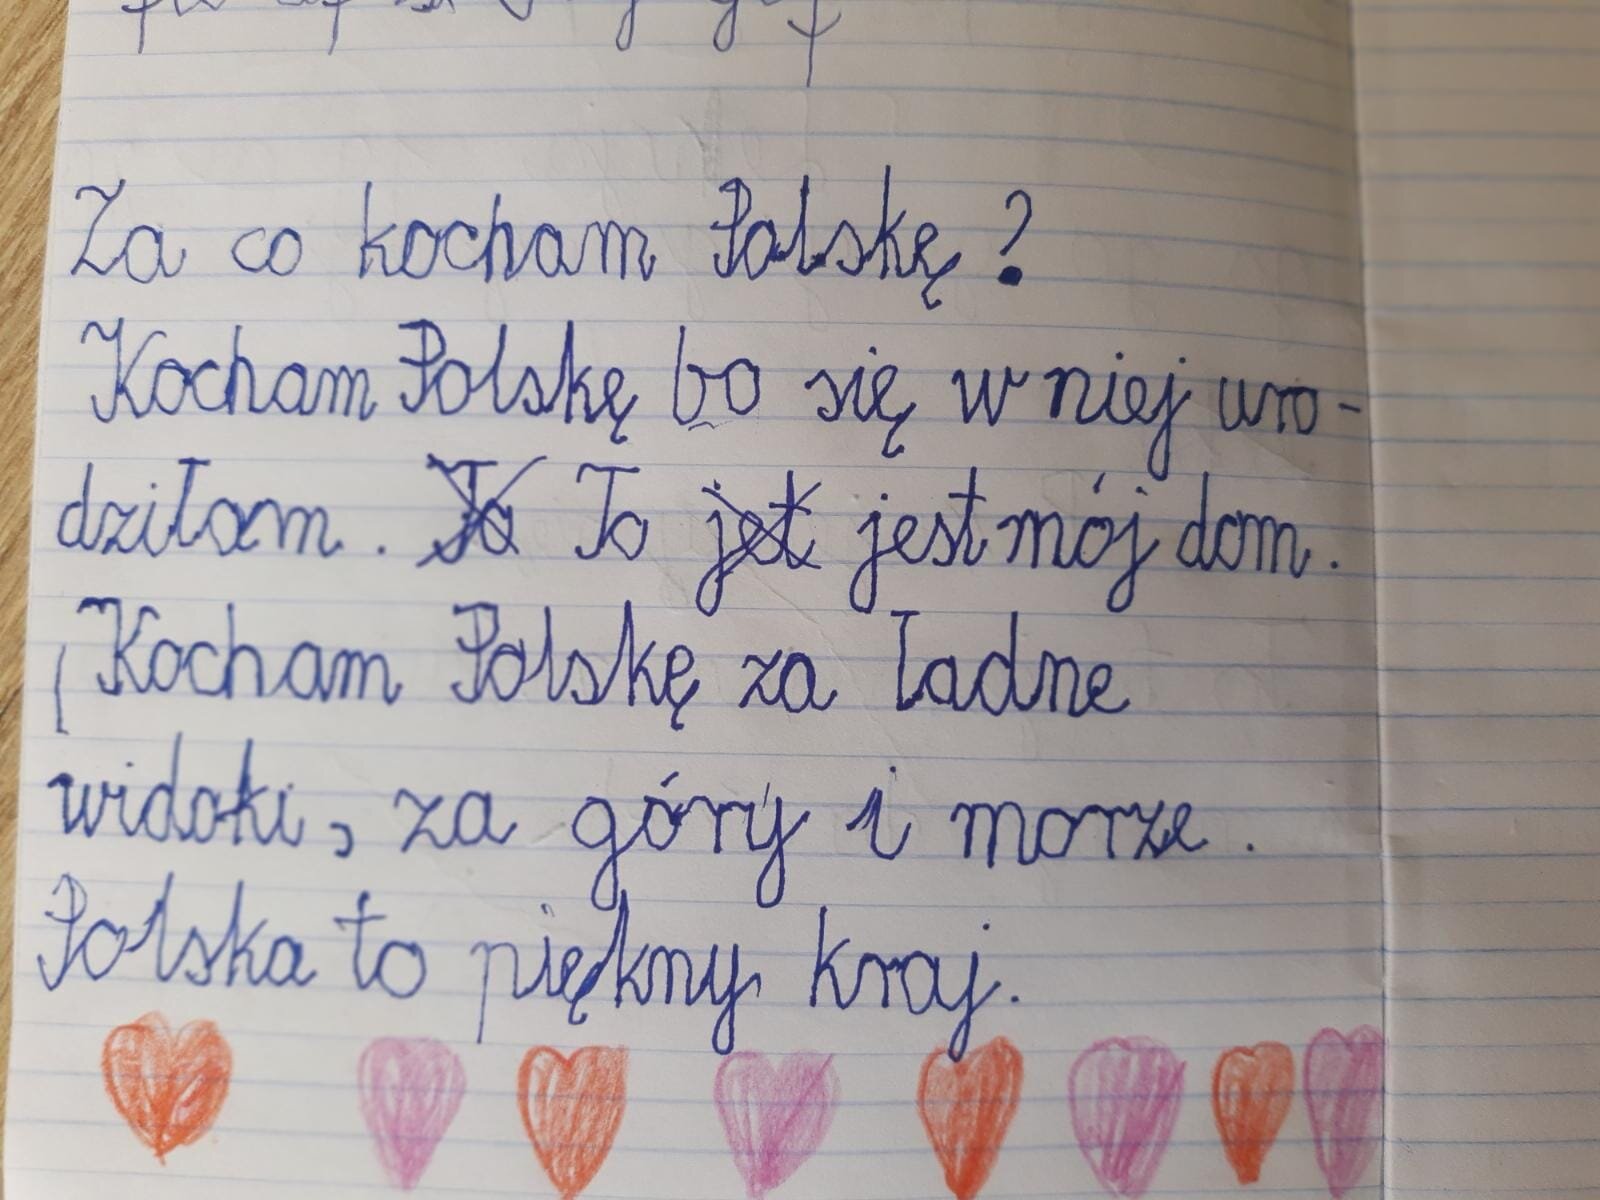 Za co kocham Polskę?
Kocham Polskę bo się w niej uro-
dziłam. To jest mój dom.
Kocham Polskę za ładne
widoki, za góry i morze.
Polska to piękny kraj.